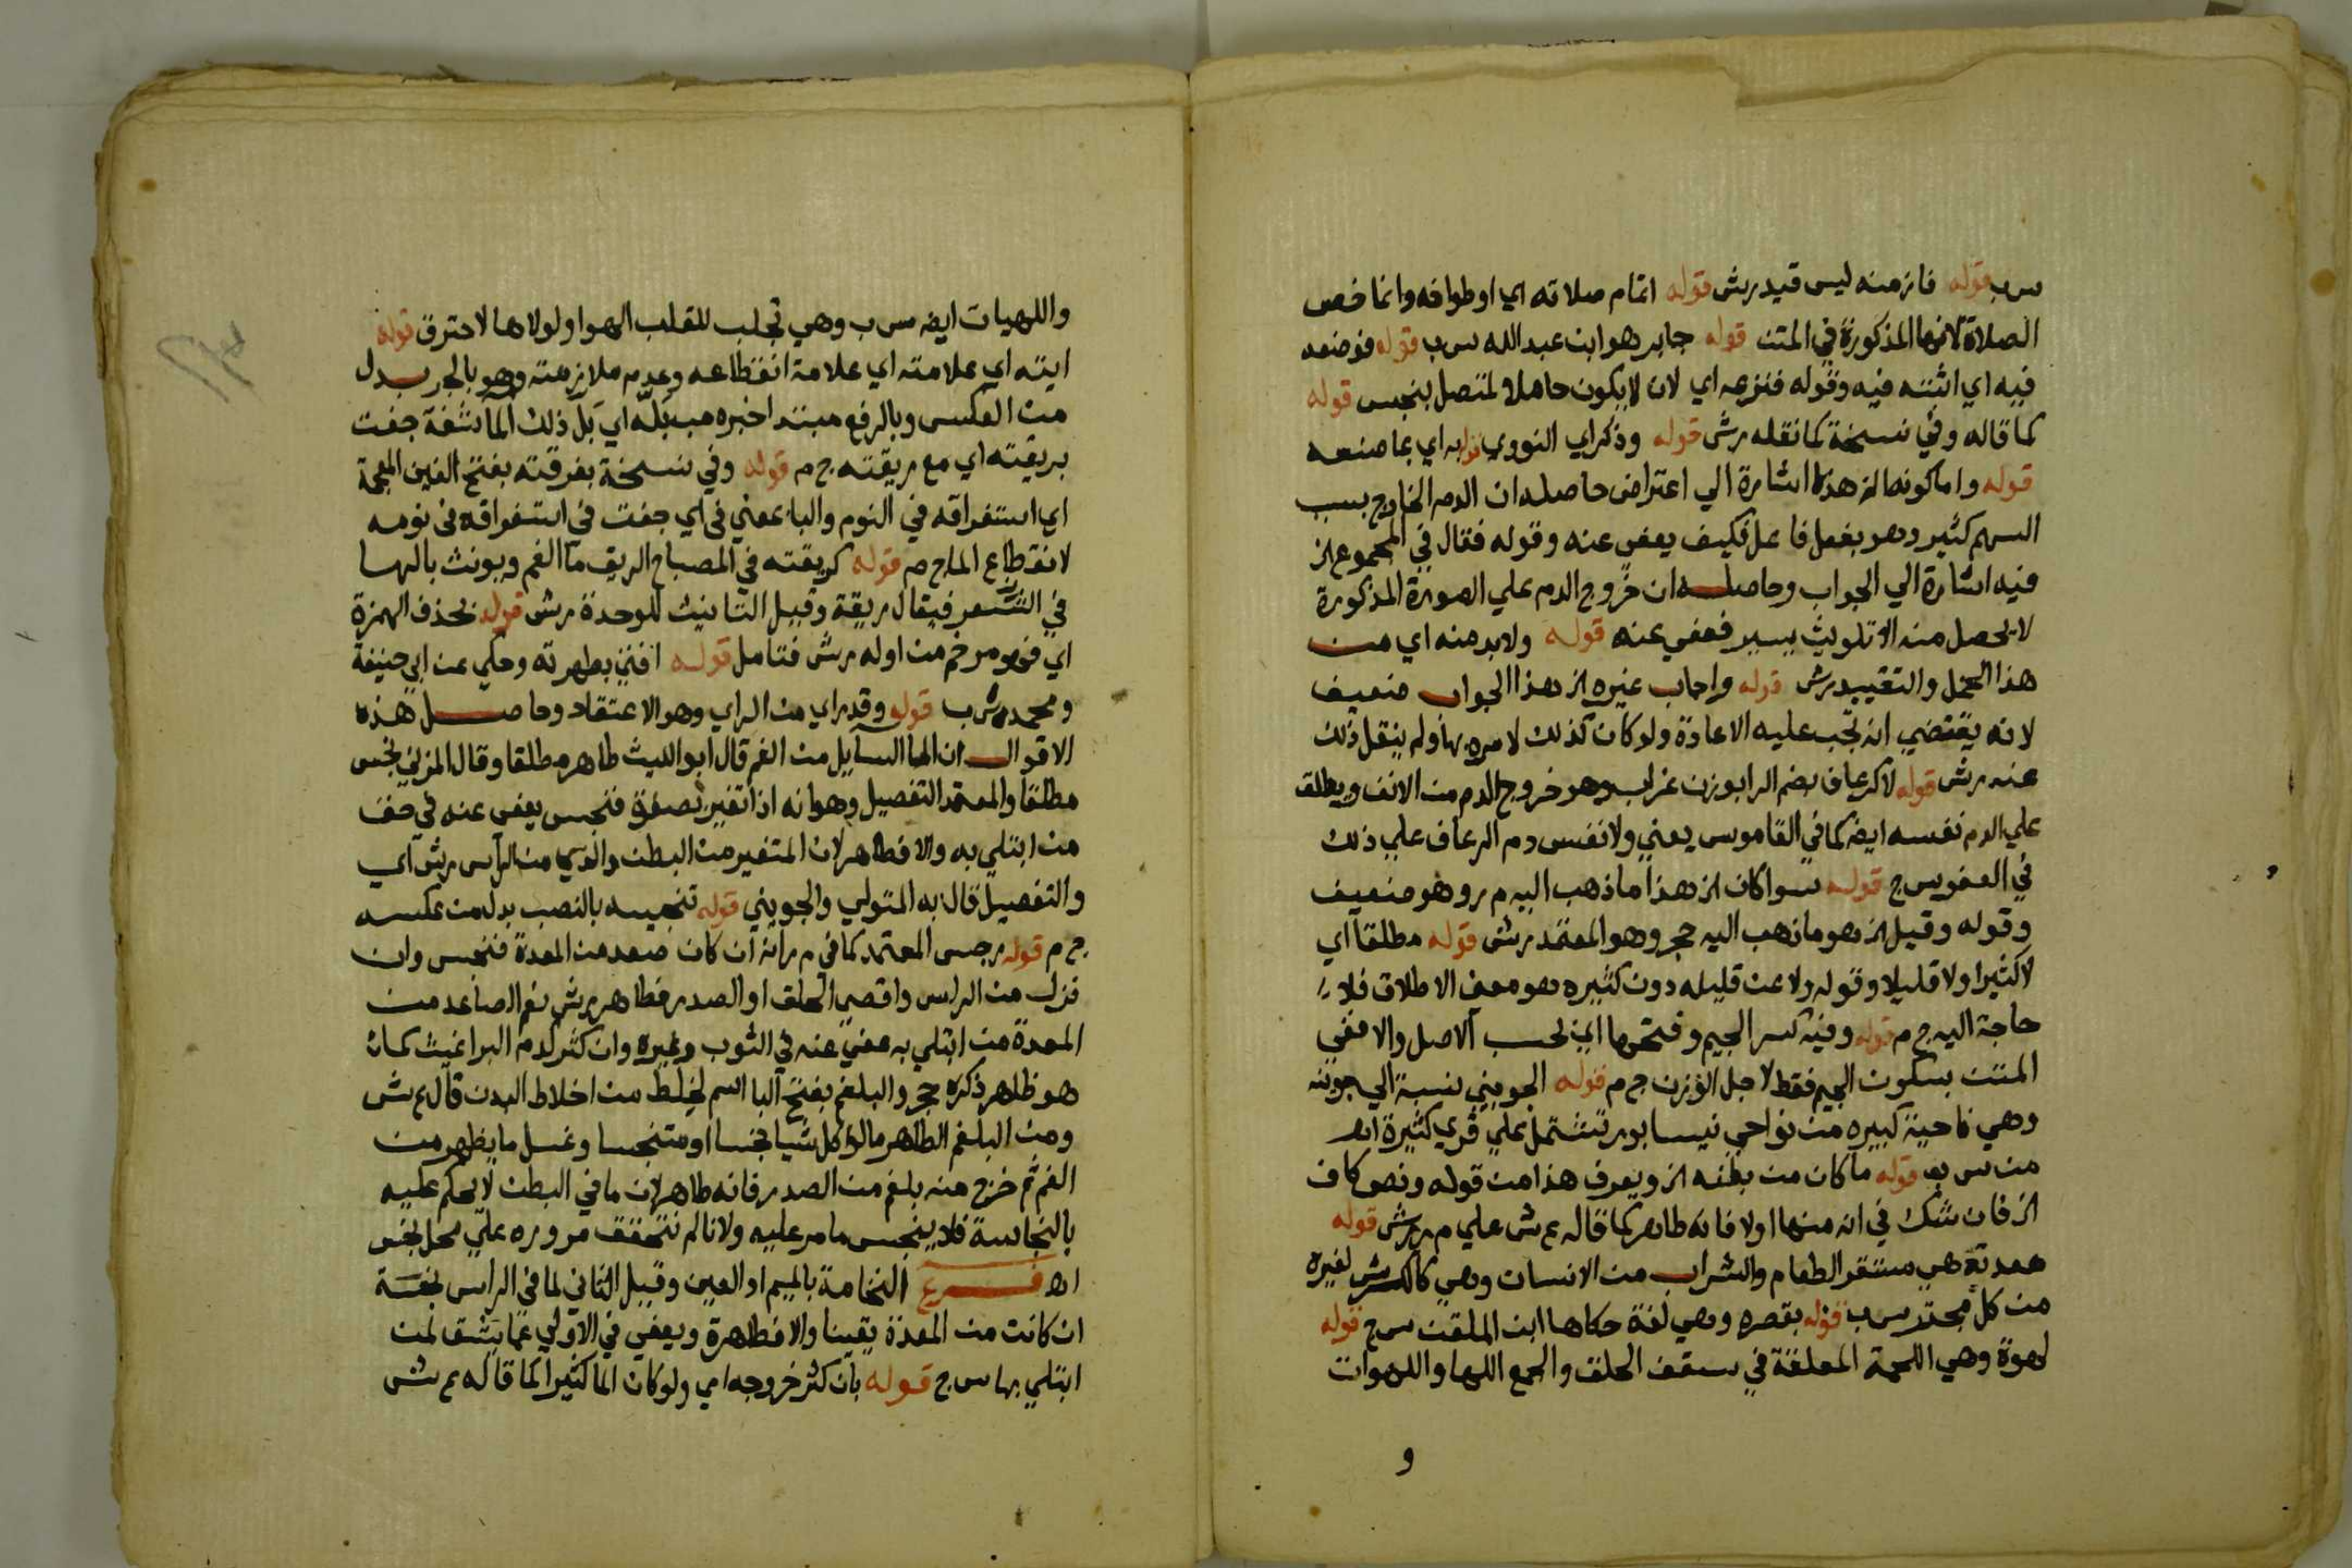 س ب قوله فازمنه ليس قيد رش قوله اتمام صلاته اي اوطوافه وانما خص
الصلاة لانها المذكورة في المتن قوله جابر هو ابن عبد الله س ب قوله فوضعه
فيه اي اثبته فيه وقوله فنزعه اي لان لايكون حاملا لمتصل بنجس قوله
كما قاله وفي نسخة كما نقله رش قوله وذكر اي النووي اي بما صنعه
قوله واما كونه الخ هذا اشارة الي اعتراض حاصله ان الدم الخارج بسبب
السهم كثير وهو بفعل فاعل فكيف يعفي عنه وقوله فقال في المجموع الخ
فيه اشارة الي الجواب وحاصله ان خروج الدم علي الصورة المذكورة
لا يحصل منه الا تلويث يسير فعفي عنه قوله ولابد منه اي من
هذا الحمل والتقييد رش قوله واجاب غيره الخ هذا الجواب ضعيف
لانه يقتضي انه تجب عليه الاعادة ولو كان كذلك لامره بها ولم ينقل ذلك
عنه رش قوله لا كرعاف بضم الرا بوزن غراب وهو خروج الدم من الانف ويطلق
علي الدم نفسه ايضا كما في القاموس يعني ولا نفس دم الرعاف علي ذلك
في العفو س ج قوله سوا كان الخ هذا ما ذهب اليه م ر وهو ضعيف
وقوله وقيل الخ هو ما ذهب اليه حجر وهو المعتمد رش قوله مطلقا اي
لا كثيرا ولا قليلا وقوله ولا عن قليله دون كثيره هو معني الاطلاق فلا
حاجة اليه ج م قوله وفيه كسر الجيم وفتحها اي بحسب الاصل والا ففي
المتن بسكون الجيم فقط لاجل الوزن ج م قوله الجويني نسبة الي جوين
وهي ناحية كبيره من نواحي نيسابور تشتمل علي قري كثيرة اهـ
من س ب قوله ما كان من بطنه الخ ويعرف هذا من قوله ونص كاف
الخ فان شك في انه منها اولا فانه طاهر كما قاله ع ش علي م ر رش قوله
معدته هي مستقر الطعام والشراب من الانسان وهي كالكرش لغيره
من كل مجتر س ب قوله بقصره وهي لغة حكاها ابن الملقن س ج قوله
لهوة وهي اللحمة المعلقة في سقف الحلق والجمع اللها واللهوات
و
واللهيات ايضا س ب وهي تجلب للقلب الهوا ولولاها لاحترق قوله
ايته اي علامته اي علامة انقطاعه وعدم ملازمته وهو بالجر بدل
من العكس وبالرفع مبتدا خبره ببله اي بل ذلك الما شفة جفت
بريقته اي مع ريقته ج م قوله وفي نسخة بغرقته بفتح الغين المعجمة
اي استغراقه في النوم والبا بمعني في اي جفت في استغراقه في نومه
لانقطاع الما ج م قوله كريقته في المصباح الريق ما الفم ويونث بالها
في الشعر فيقال ريقة وقيل التانيث للوحدة رش قوله بحذف الهمزة
اي فهو مرخم من اوله رش فتامل قوله افتي بطهرته وحكي عن ابي حنيفة
ومحمد س ب قوله وقد راي من الراي وهو الاعتقاد وحاصل هذه
الاقوال ان الما السايل من الفم قال ابو الليث طاهر مطلقا وقال المزني نجس
مطلقا والمعتمد التفصيل وهو انه اذا تغير بصفرة فنجس يعفي عنه في حق
من ابتلي به والا فطاهر لان المتغير من البطن من الراس رش اي
والتفصيل قال به المتولي والجويني قوله تنجيسه بالنصب بدل من عكسه
ج م قوله رجس المعتمد كما في م ر انه ان كان صعد من المعدة فنجس وان
نزل من الراس واقصي الحلق او الصدر فطاهر رش نعم الصاعد من
المعدة من ابتلي به عفي عنه في الثوب وغيره وان كثر كدم البراغيث كما
هو ظاهر ذكره حجر والبلغم بفتح البا اسم لخلط من اخلاط البدن قال ع ش
ومن البلغم الطاهر ما لو اكل شيا نجسا او متنجسا وغسل ما يظهر من
الفم ثم خرج منه بلغم من الصدر فانه طاهر لان ما في البطن لا يحكم عليه
بالنجاسة فلا ينجس ما مر عليه ولانا لم نتحقق مروره علي محل نجس
اهـ فرع النخامة بالميم او العين وقيل الثاني لما في الراس نجسة
ان كانت من المعدة يقينا والا فطاهرة ويعفي في الاولي عما يشق لمن
ابتلي بها س ج قوله بان كثر خروجه اي ولو كان الما كثيرا كما قاله ع ش